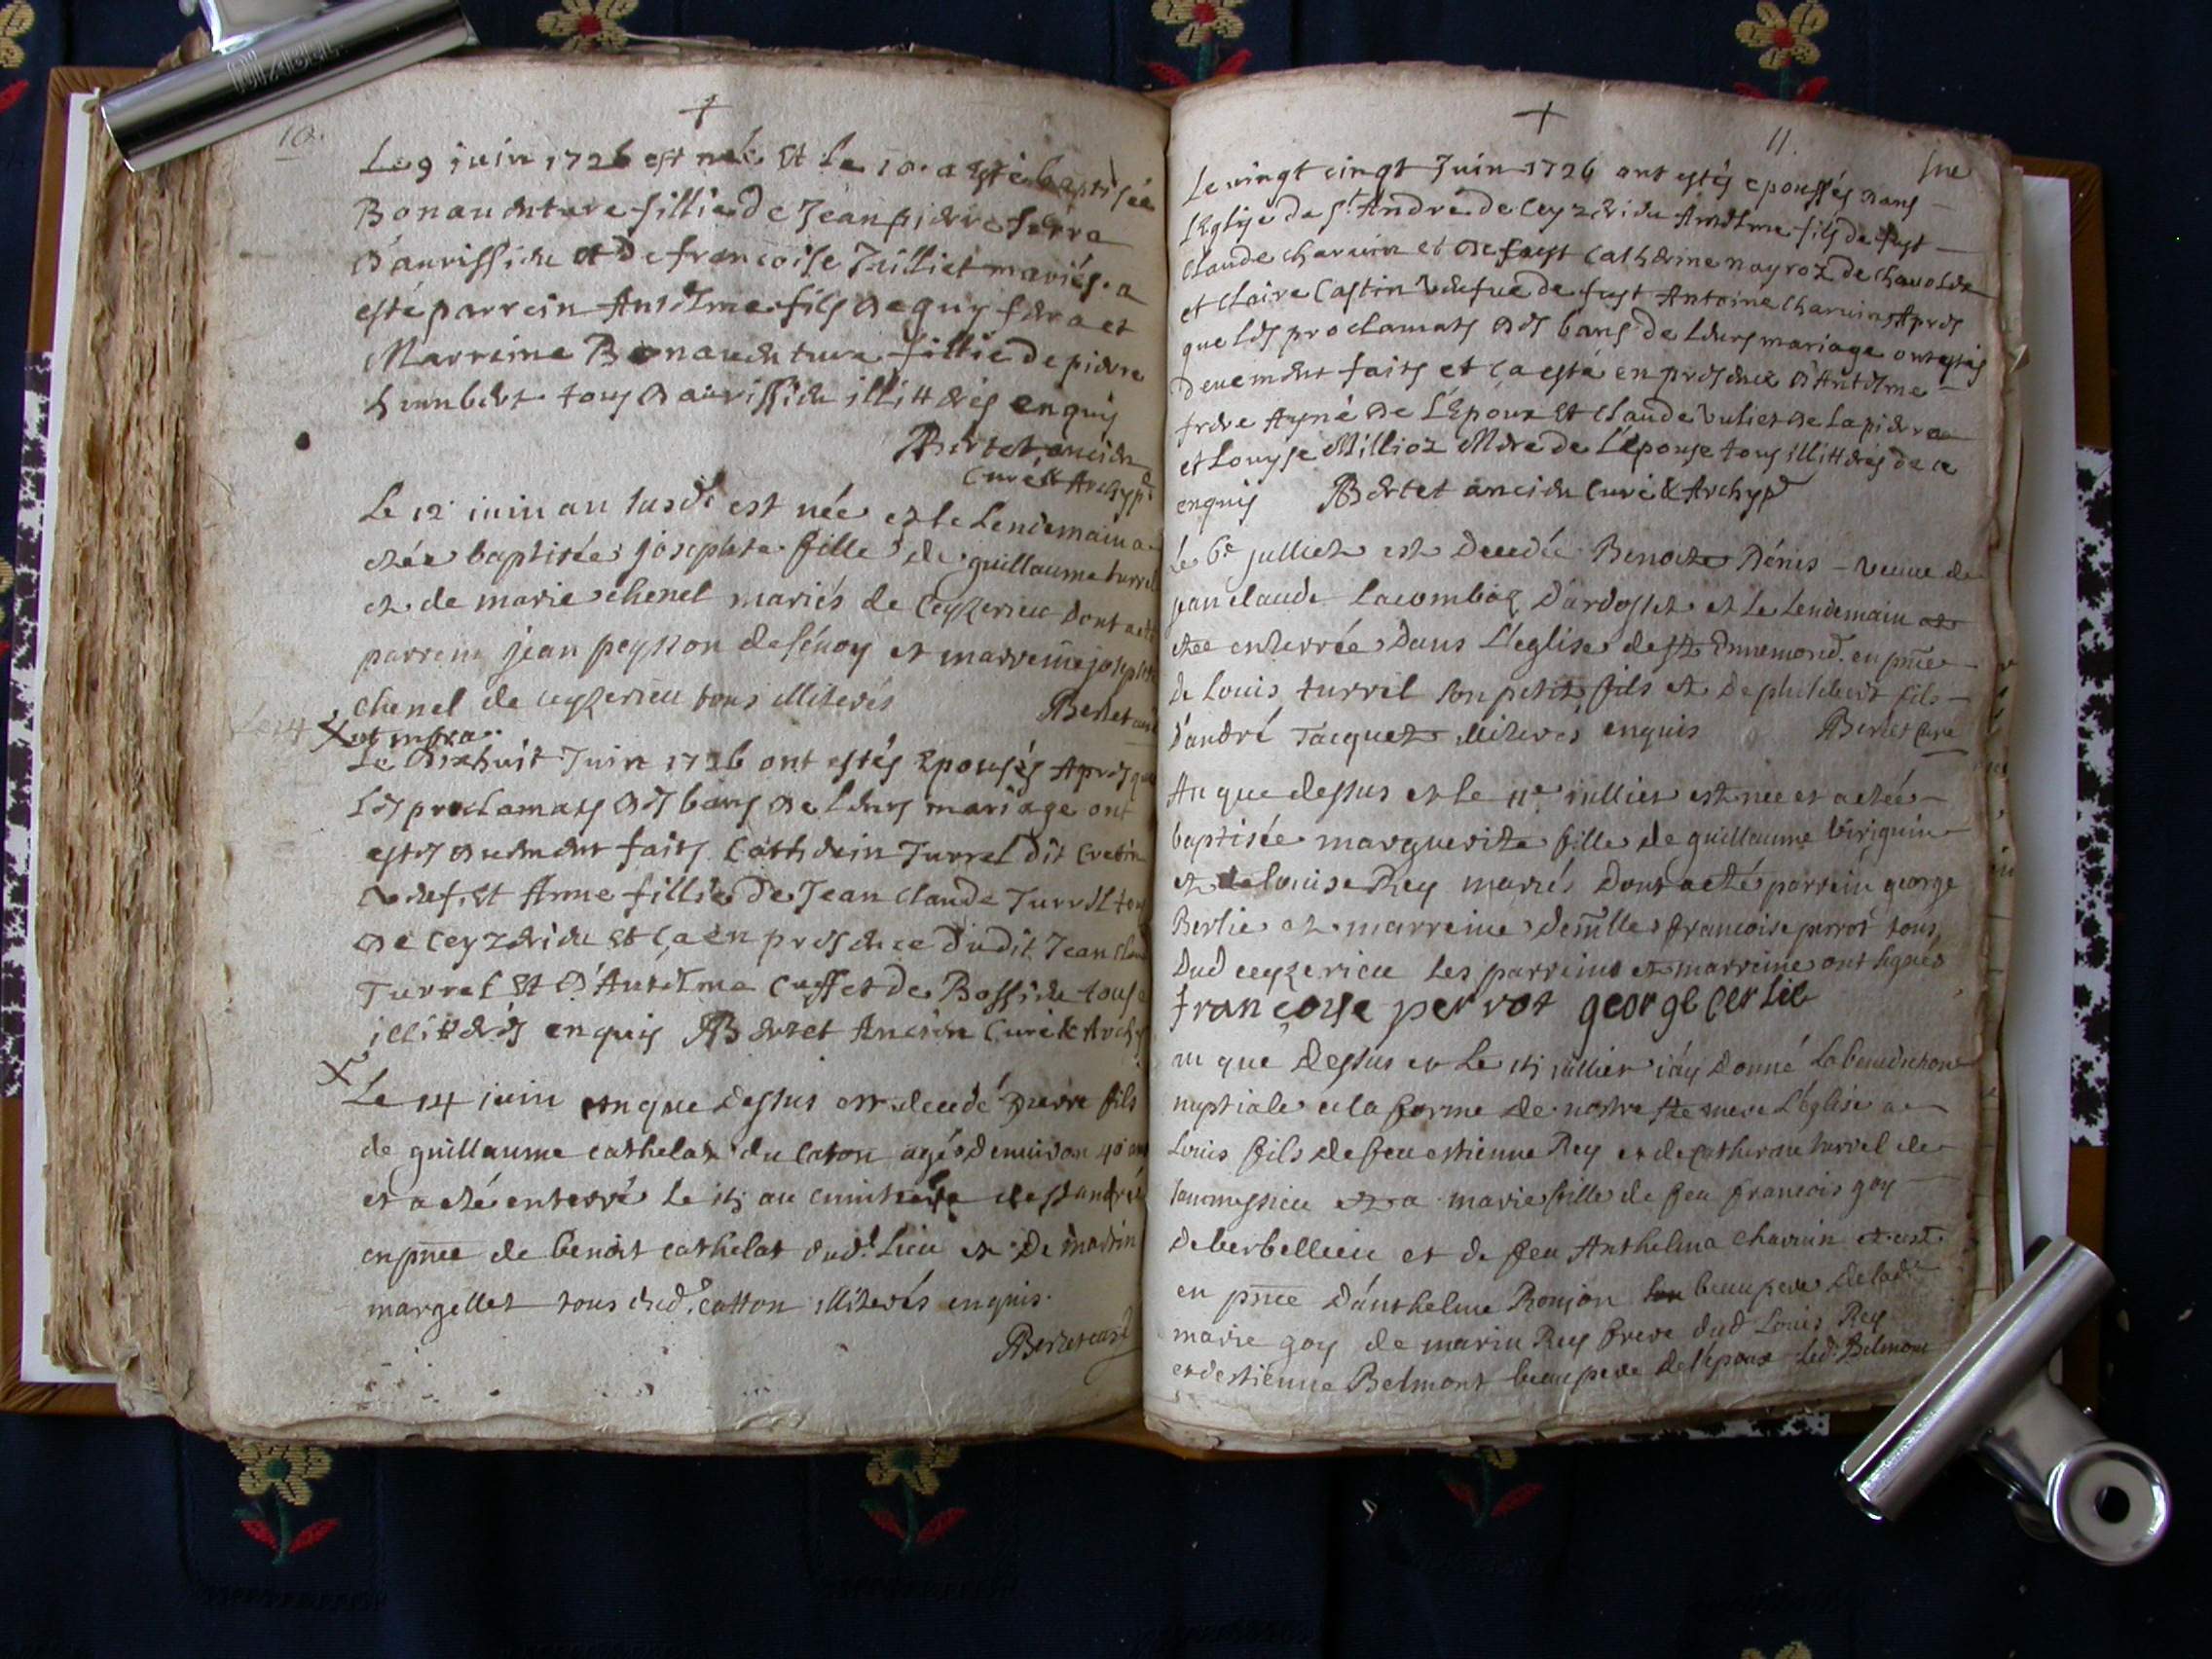 10.
Le 9 juin 1726 est née Et le 10. a esté baptisée
Bonauenture fillie de Jean pierre serra
D'aurissieu et De francoise Juilliet mariés. a
esté parrein Antelme fils de guy sera et
Marreine Bonauenture fillie De pierre
humbert tous D'aurissieu illitterés enquis
Bertet, ancien
Curé & Archypre
Le 12 juin an susd est née et le Lendemain a
etée baptisée josephte fille de guillaume turrel
et de marie chenel mariés de Ceyzerieu Dont a eté
parrein jean peysson de seuoy et marreine josephte
chenel de ceyzerieu tous illiterés Bertet curé
ut infra
Le Dixhuit Juin 1726 ont estés Epousés Apres que
Les proclamats des bans de Leurs mariage ont
estes deuement faits Catherin Turrel Dit Cretin
Vuef. Et Anne fillie De Jean Claude Turrel tous
de Ceyzerieu Et ça en presence Dudit Jean Claude
Turrel Et D'Antelme Cuffet De Bossieu tous
illitterés enquis Bertet Ancien Curé & Archyp
Le 14 juin an que Dessus est decedé pierre fils
de guillaume cathelat du Caton agé D'enuiron 40 ans
et a eté enterré le 15 au cimitiere de st andré
en pnce de benoit cathelat dud. Lieu et De martin
margellet tous dud. catton illiterés enquis.
Bertet curé
11.
Le vingt cingt Juin 1726 ont estés epousés Dans
L'Eglise de St. André de Ceyzerieu Antelme fils de fust
Claude charuin et de fust Catherine nayroz de chauoley
et Claire Castin Vuefue de fust Antoine Charuin Apres
que Les proclamats des bans de Leurs mariage ont estés
Deuement faits et ça esté en presence D'Antelme
frere Ayné de L'Epoux Et Claude Vuliet de La pierre
et Louyse Millioz Mere de L'épouse tous illitterés de ce
enquis Bertet ancien Curé & Archyp
Le 6e julliet est Decedée Benoite Dénis veuue de
jean claude Lacombaz D'ardosset et Le Lendemain a
etée enterrée Dans L'eglise de st Annemond. en pnce
de Louis turrel son petit fils et De philibert fils
D'andré Jacquet illiterés enquis Bertet Curé
An que dessus et le 11e julliet est née et a etée
baptisée marguerite fille de guillaume Viriguin
et de Louise Rey mariés Dont a eté parrein george
Berlie et marreine demlle francoise perrot tous
Dud ceyzerieu Les parreins et marreine ont signés
francoise perrot george berlie
an que Dessus et Le 15 julliet j'ay Donné La benediction
nuptiale a la forme De nostre ste mere L'église a
Louis fils de feu estienne Rey et de catherine turrel de
et a marie fille de feu francois goy
de berbellieu et de feu Anthelma charuin et est
en pnce D'anthelme Ronjon beaupere De lade
marie goy de marin Rey frere dud Louis Rey
et d'estienne Belmont beaupere de l'époux led. Belmont